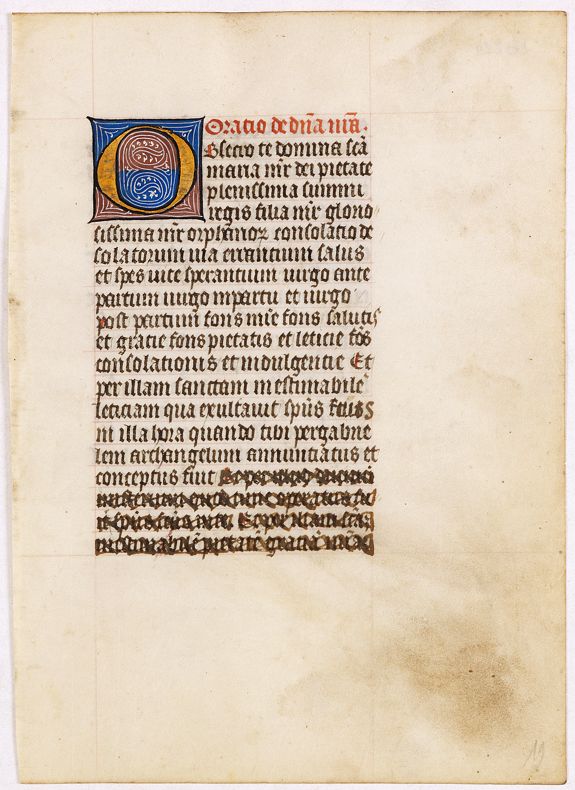 Oratio de dn̄a nr̄a.
Obsecro te domina scā
maria mr̄ dei pietate
plenissima summi
regis filia mr̄ glorio
sissima mr̄ orphanoꝝ consolatio de
solatorum uia errantium salus
et spes i te sperantium uirgo ante
partum uirgo in partu et uirgo
post partum fons mīe fons salutis
et gratie fons pietatis et leticie fōs
consolationis et indulgentie Et
per illam sanctam inestimabilē
leticiam qua exultauit sp̄us
in illa hora quando tibi per gabrie
lem archangelum annuntiatus et
conceptus fuit